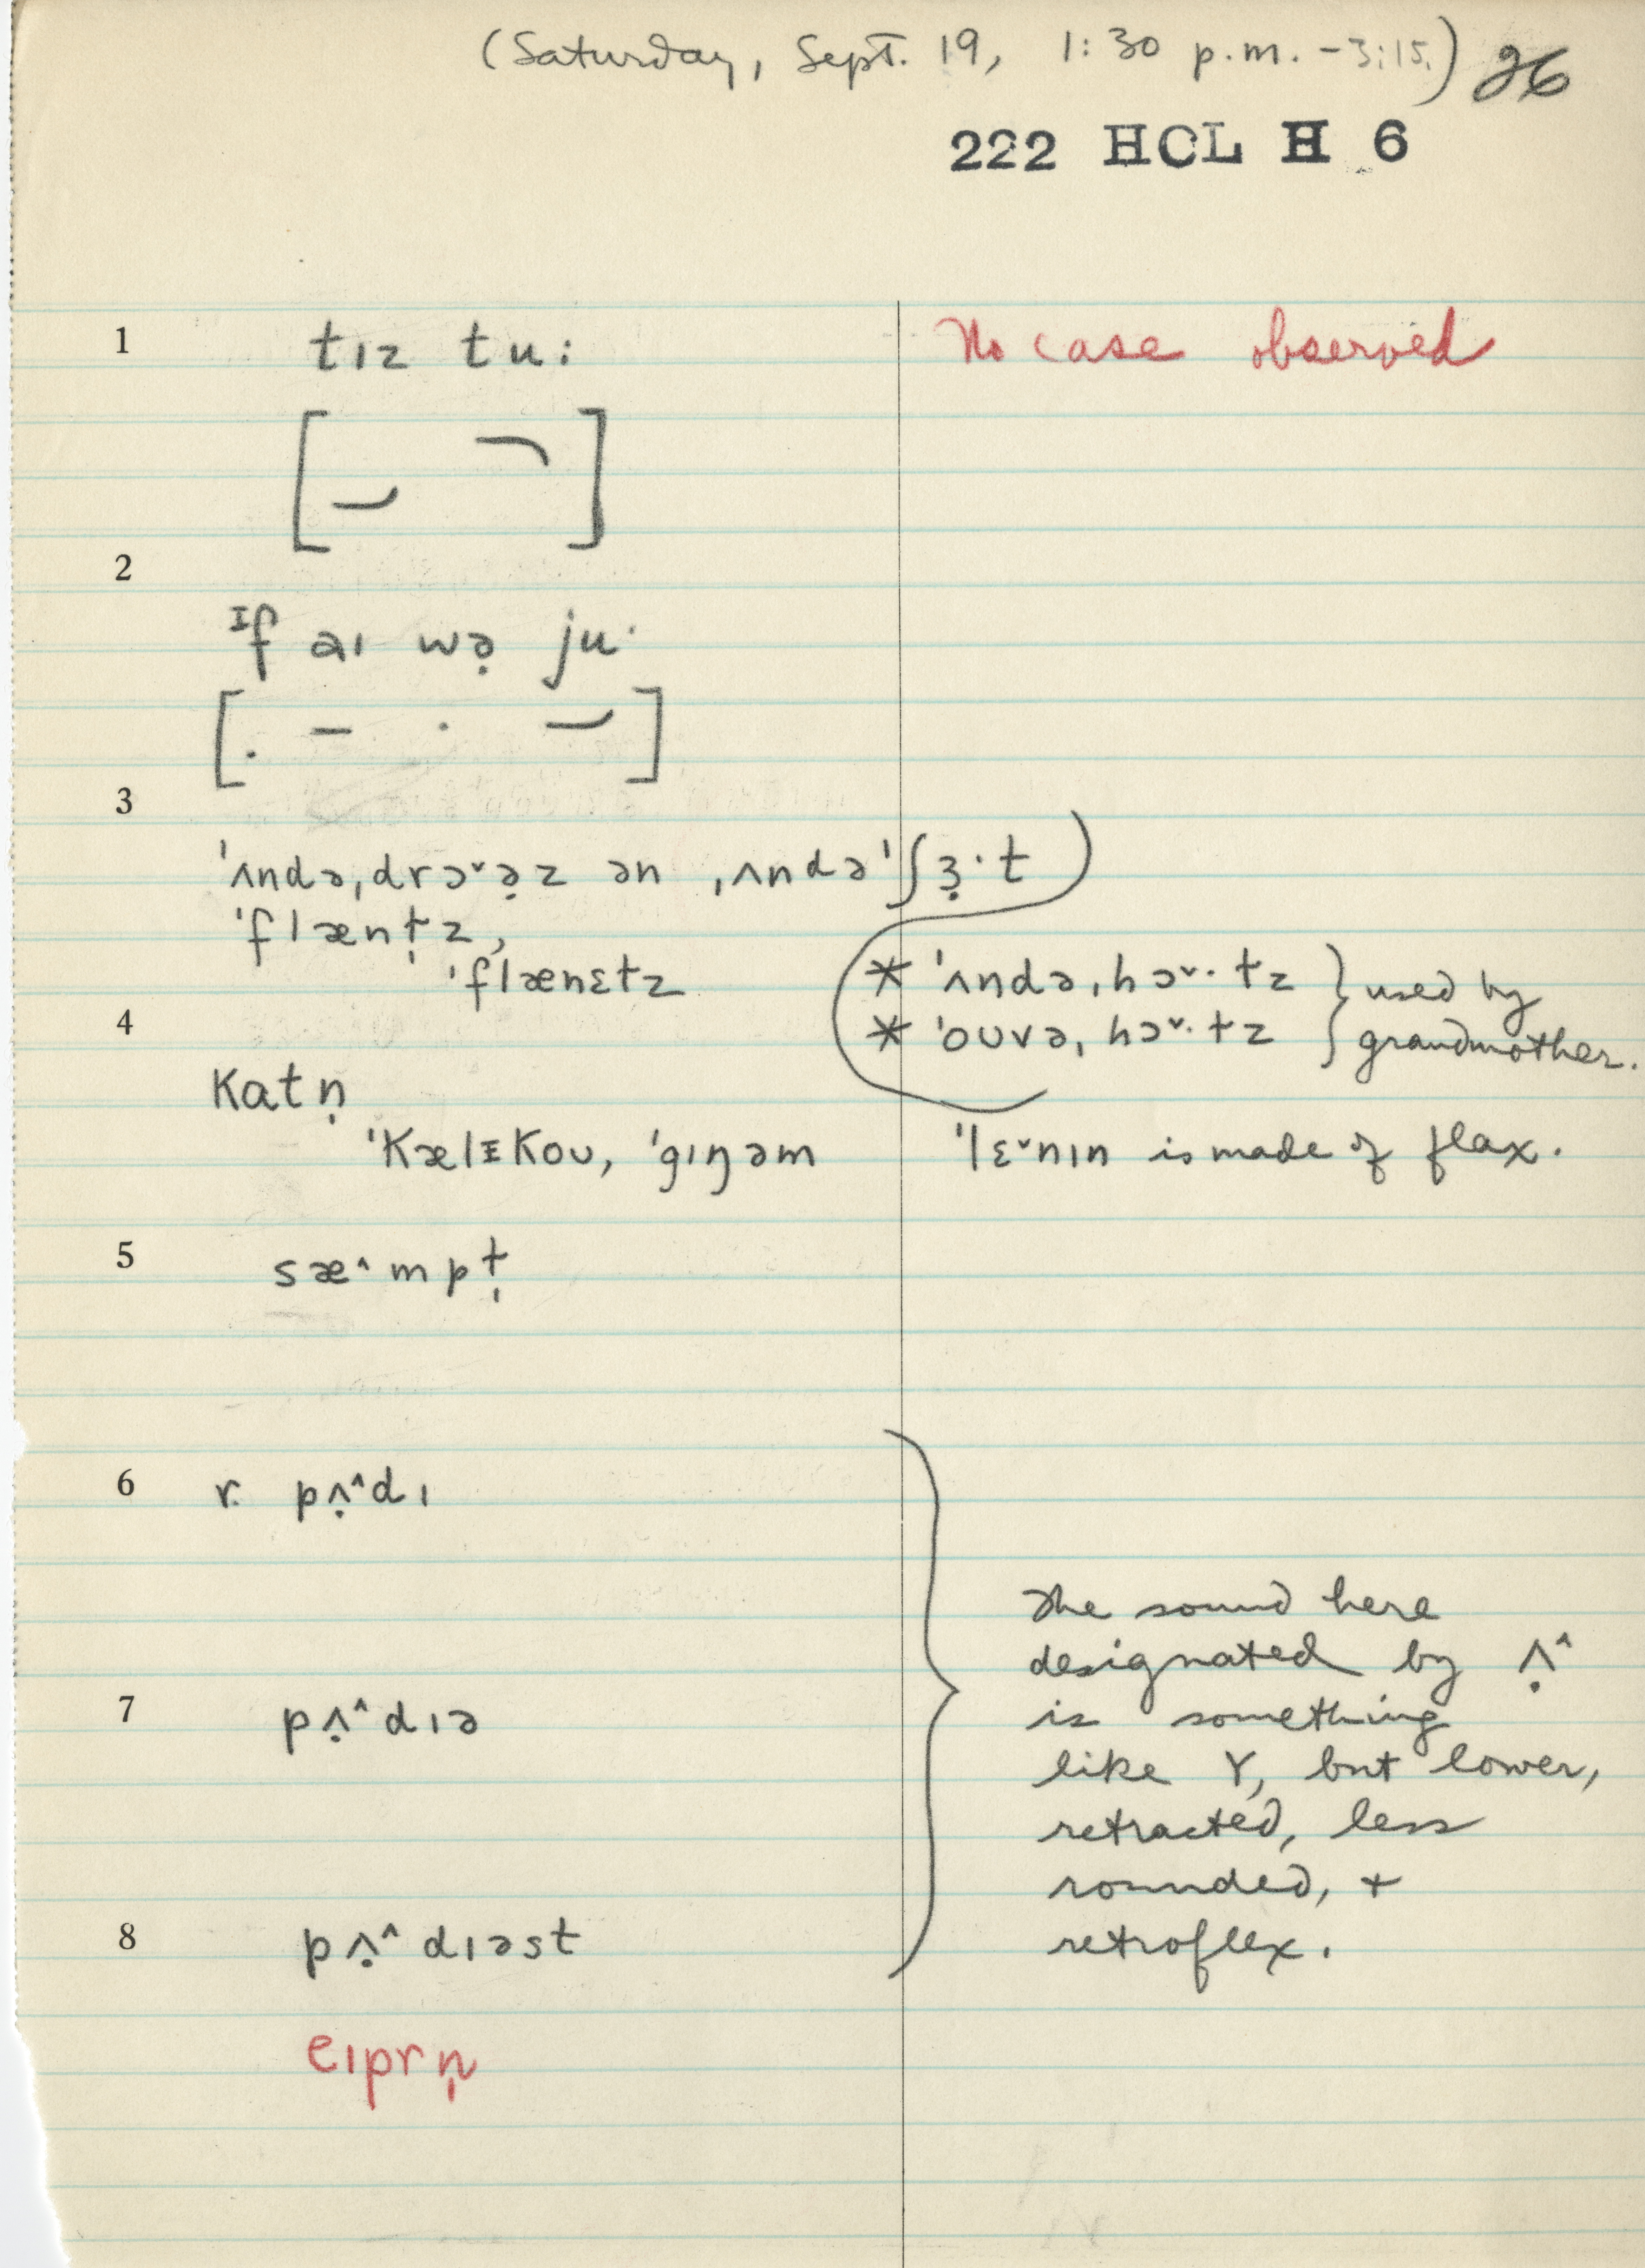 (Saturday, Sept. 19, 1:30 p.m. - 3:15.) 26
222 HCL H 6
1 tɪz tu: No case observed
2
ɪf aɪ wə̣ ju·
3
ˈʌndəˌdrɔˇə̣z ən ˌʌndəˈʃɜ̣·t
ˈflænt̩z,
ˈflænɛtz
* ˈʌndəˌhɔˇ·tz } used by
* ˈoʊvəˌhɔˇ·tz } grandmother.
4
Katn̩
ˈKælɪKoʊ, ˈgɪŋəm ˈlɛˇnɪn is made of flax.
5 sæ^mpt̩
6 r. pʌ̣^dɪ
7 pʌ̣^dɪə
8 pʌ̣^dɪəst
The sound here
designated by ʌ̣^
is something
like Y, but lower,
retracted, less
rounded, +
retroflex.
eɪprn̩